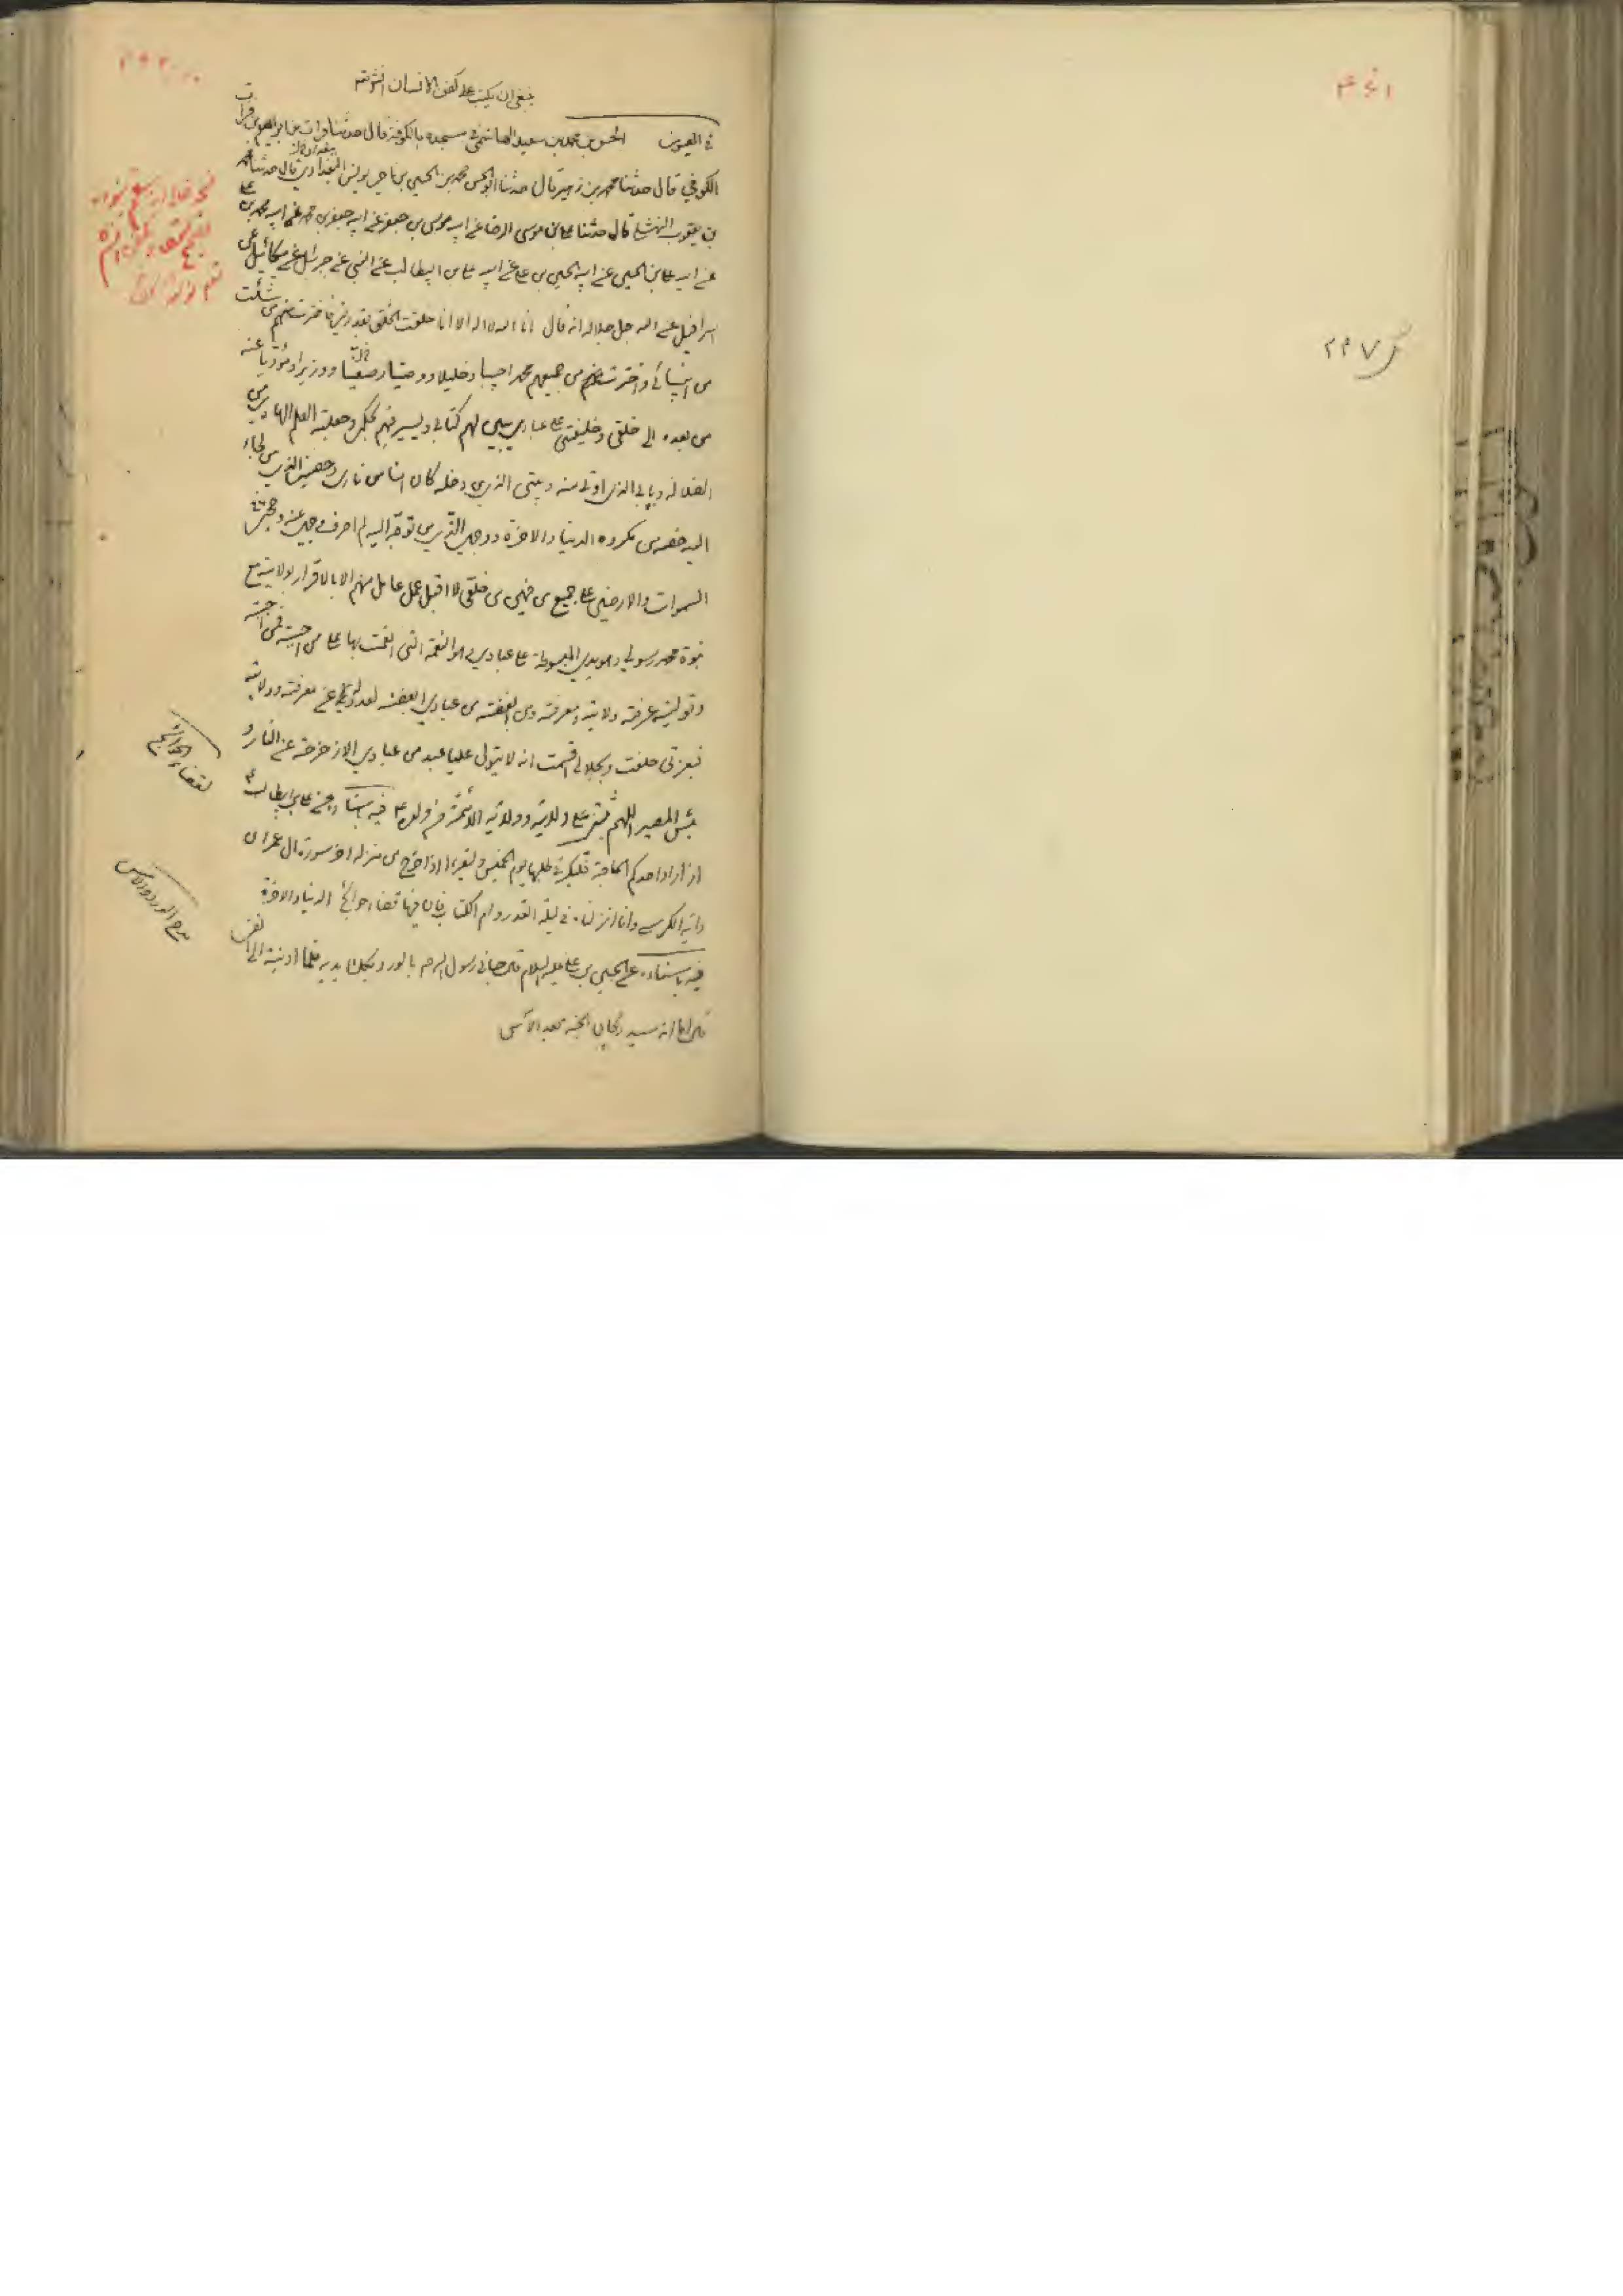 ينبغي ان يكتب على كفن الانسان
في العيون الحسن بن محمد بن سعيد الهاشمي في مسجده بالكوفة قال حدثنا فرات بن ابراهيم بن فرات
الكوفي قال حدثنا محمد بن ظهير قال حدثنا ابو الحسن محمد بن الحسين بن اخي يونس البغدادي ببغداد قال حدثنا محمد
بن يعقوب النهشلي قال حدثنا علي بن موسى الرضا عن ابيه موسى بن جعفر عن ابيه جعفر بن محمد عن ابيه محمد بن علي
عن ابيه علي بن الحسين عن ابيه الحسين بن علي عن ابيه علي بن ابيطالب عن النبي عن جبرئيل عن ميكائيل عن
اسرافيل عن الله جل جلاله انه قال انا الله لا اله الا انا خلقت الخلق بقدرتي فاخترت منهم من شئت
من انبيائي واخترت من جميعهم محمدا حبيبا وخليلا وصفيا ووزيرا ومؤديا عنه
من بعده الى خلقي وخليفتي على عبادي ليبين لهم كتابي ويسير فيهم بحكمي وجعلته العلم الهادي من
الضلالة وبابي الذي اوتى منه وبيتي الذي من دخله كان امنا من ناري وحصني الذي من لجاء
اليه حصنه من مكروه الدنيا والاخرة ووجهي الذي من توجه اليه لم اصرف وجهي عنه وحجتي في
السموات والارضين على جميع من فيهن من خلقي لا اقبل عمل عامل منهم الا بالاقرار بولايته مع
نبوة محمد رسولي وهو يدي المبسوطة على عبادي وهو النعمة التي انعمت بها على من احببته فمن احببته
وتوليته عرفته ولايته ومعرفته ومن ابغضته من عبادي ابغضته لعدوله عن معرفته وولايته
فبعزتي حلفت وبجلالي اقسمت انه لا يتولى عليا عبد من عبادي الا زحزحته عن النار و
بئس المصير اللهم ثبتني على ولايته وولاية الائمة من ولده فيه باسناده عن علي بن ابيطالب
اذا اراد احدكم الحاجة فليبكر في طلبها يوم الخميس وليقرء اذا خرج من منزله اخر سورة ال عمران
واية الكرسي وانا انزلناه في ليلة القدر وام الكتاب فان فيها قضاء حوائج الدنيا والاخرة
فيه باسناده عن الحسين بن علي عليه السلام قال حباني رسول الله ص بالورد بكلتا يديه فلما ادنيته الى انفي
قال اما انه سيد ريحان الجنة بعد الآس
لقضاء الحوائج
مدح الورد والآس
٢٩٧